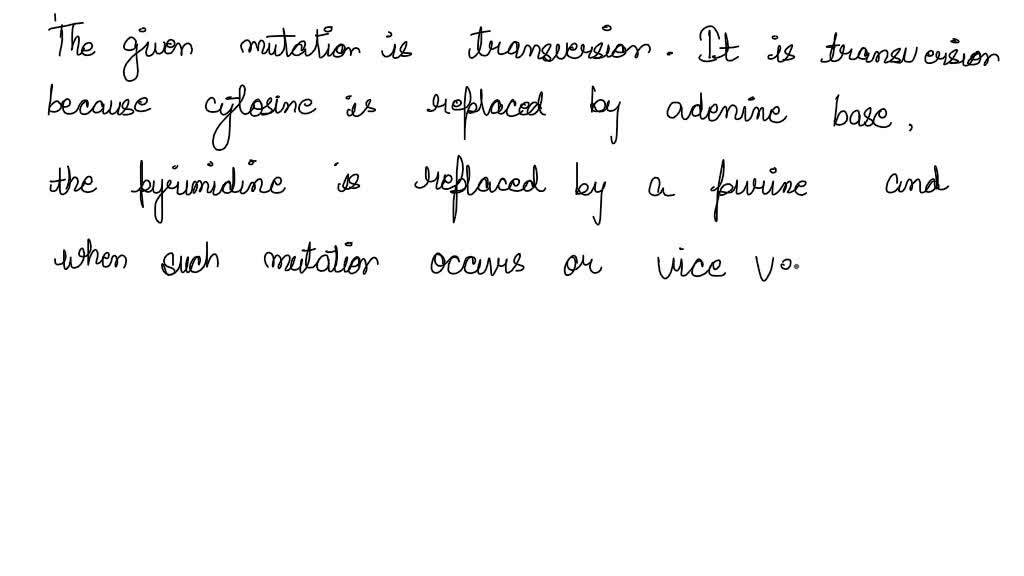 The given mutation is transversion. It is transversion
because cytosine is replaced by adenine base,
the pyrimidine is replaced by a purine and
when such mutation occurs or vice